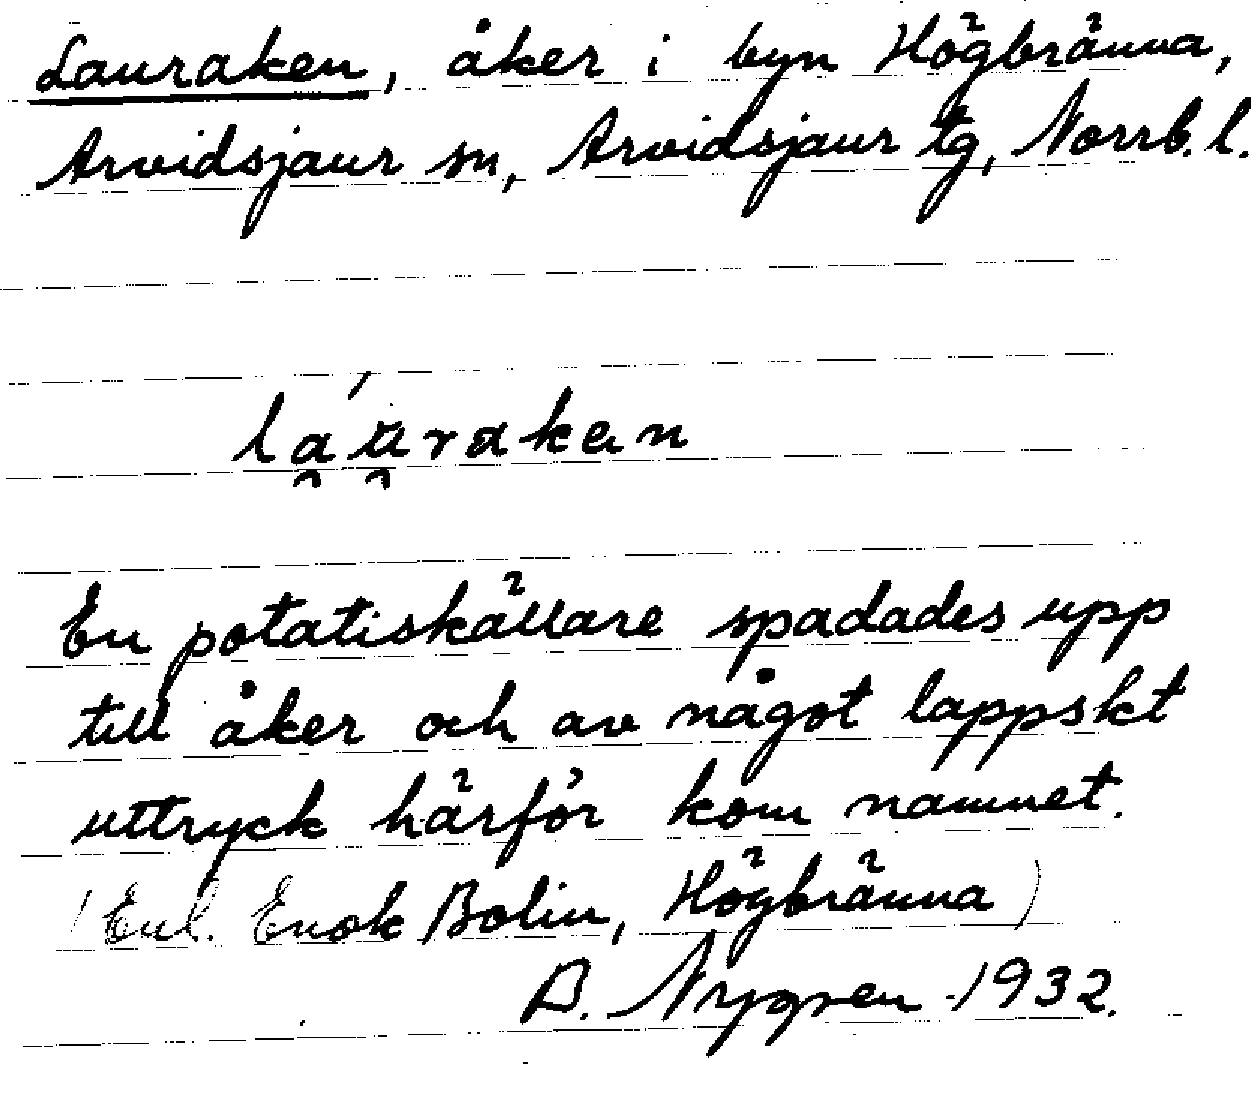 Lauraken, åker i byn Högbränna,
Arvidsjaur sn, Arvidsjaur tg, Norrb. l.
En potatiskällare spadades upp
till åker och av något lappskt
uttryck härför kom namnet.
(Enl. Enok Bolin, Högbränna)
B. Nygren 1932.